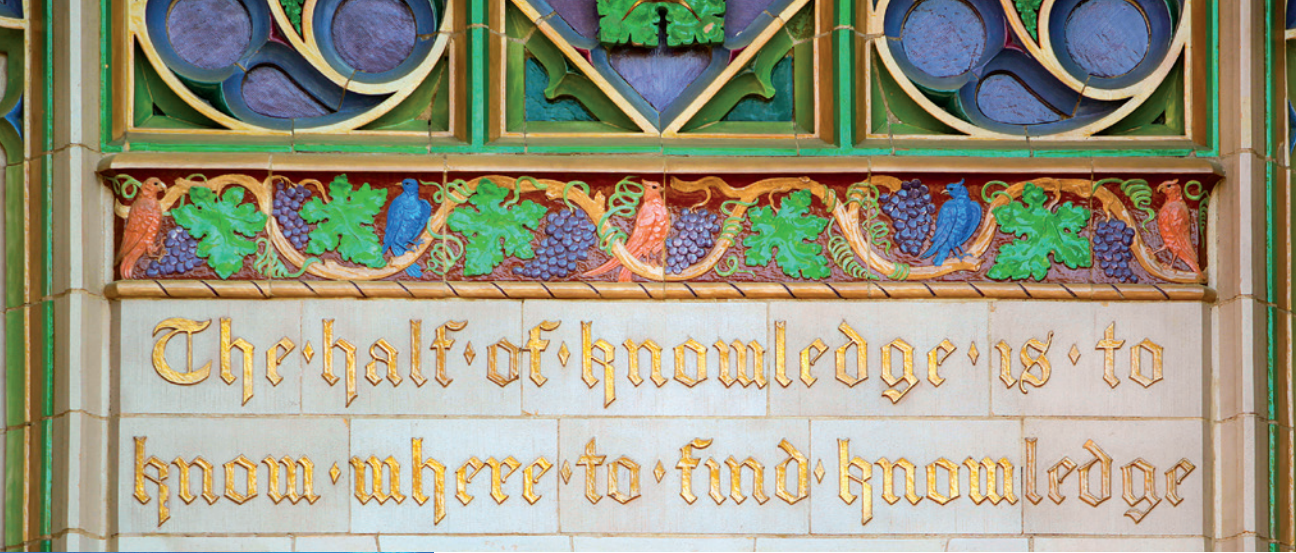 The · half · of · knowledge · is · to
know · where · to · find · knowledge